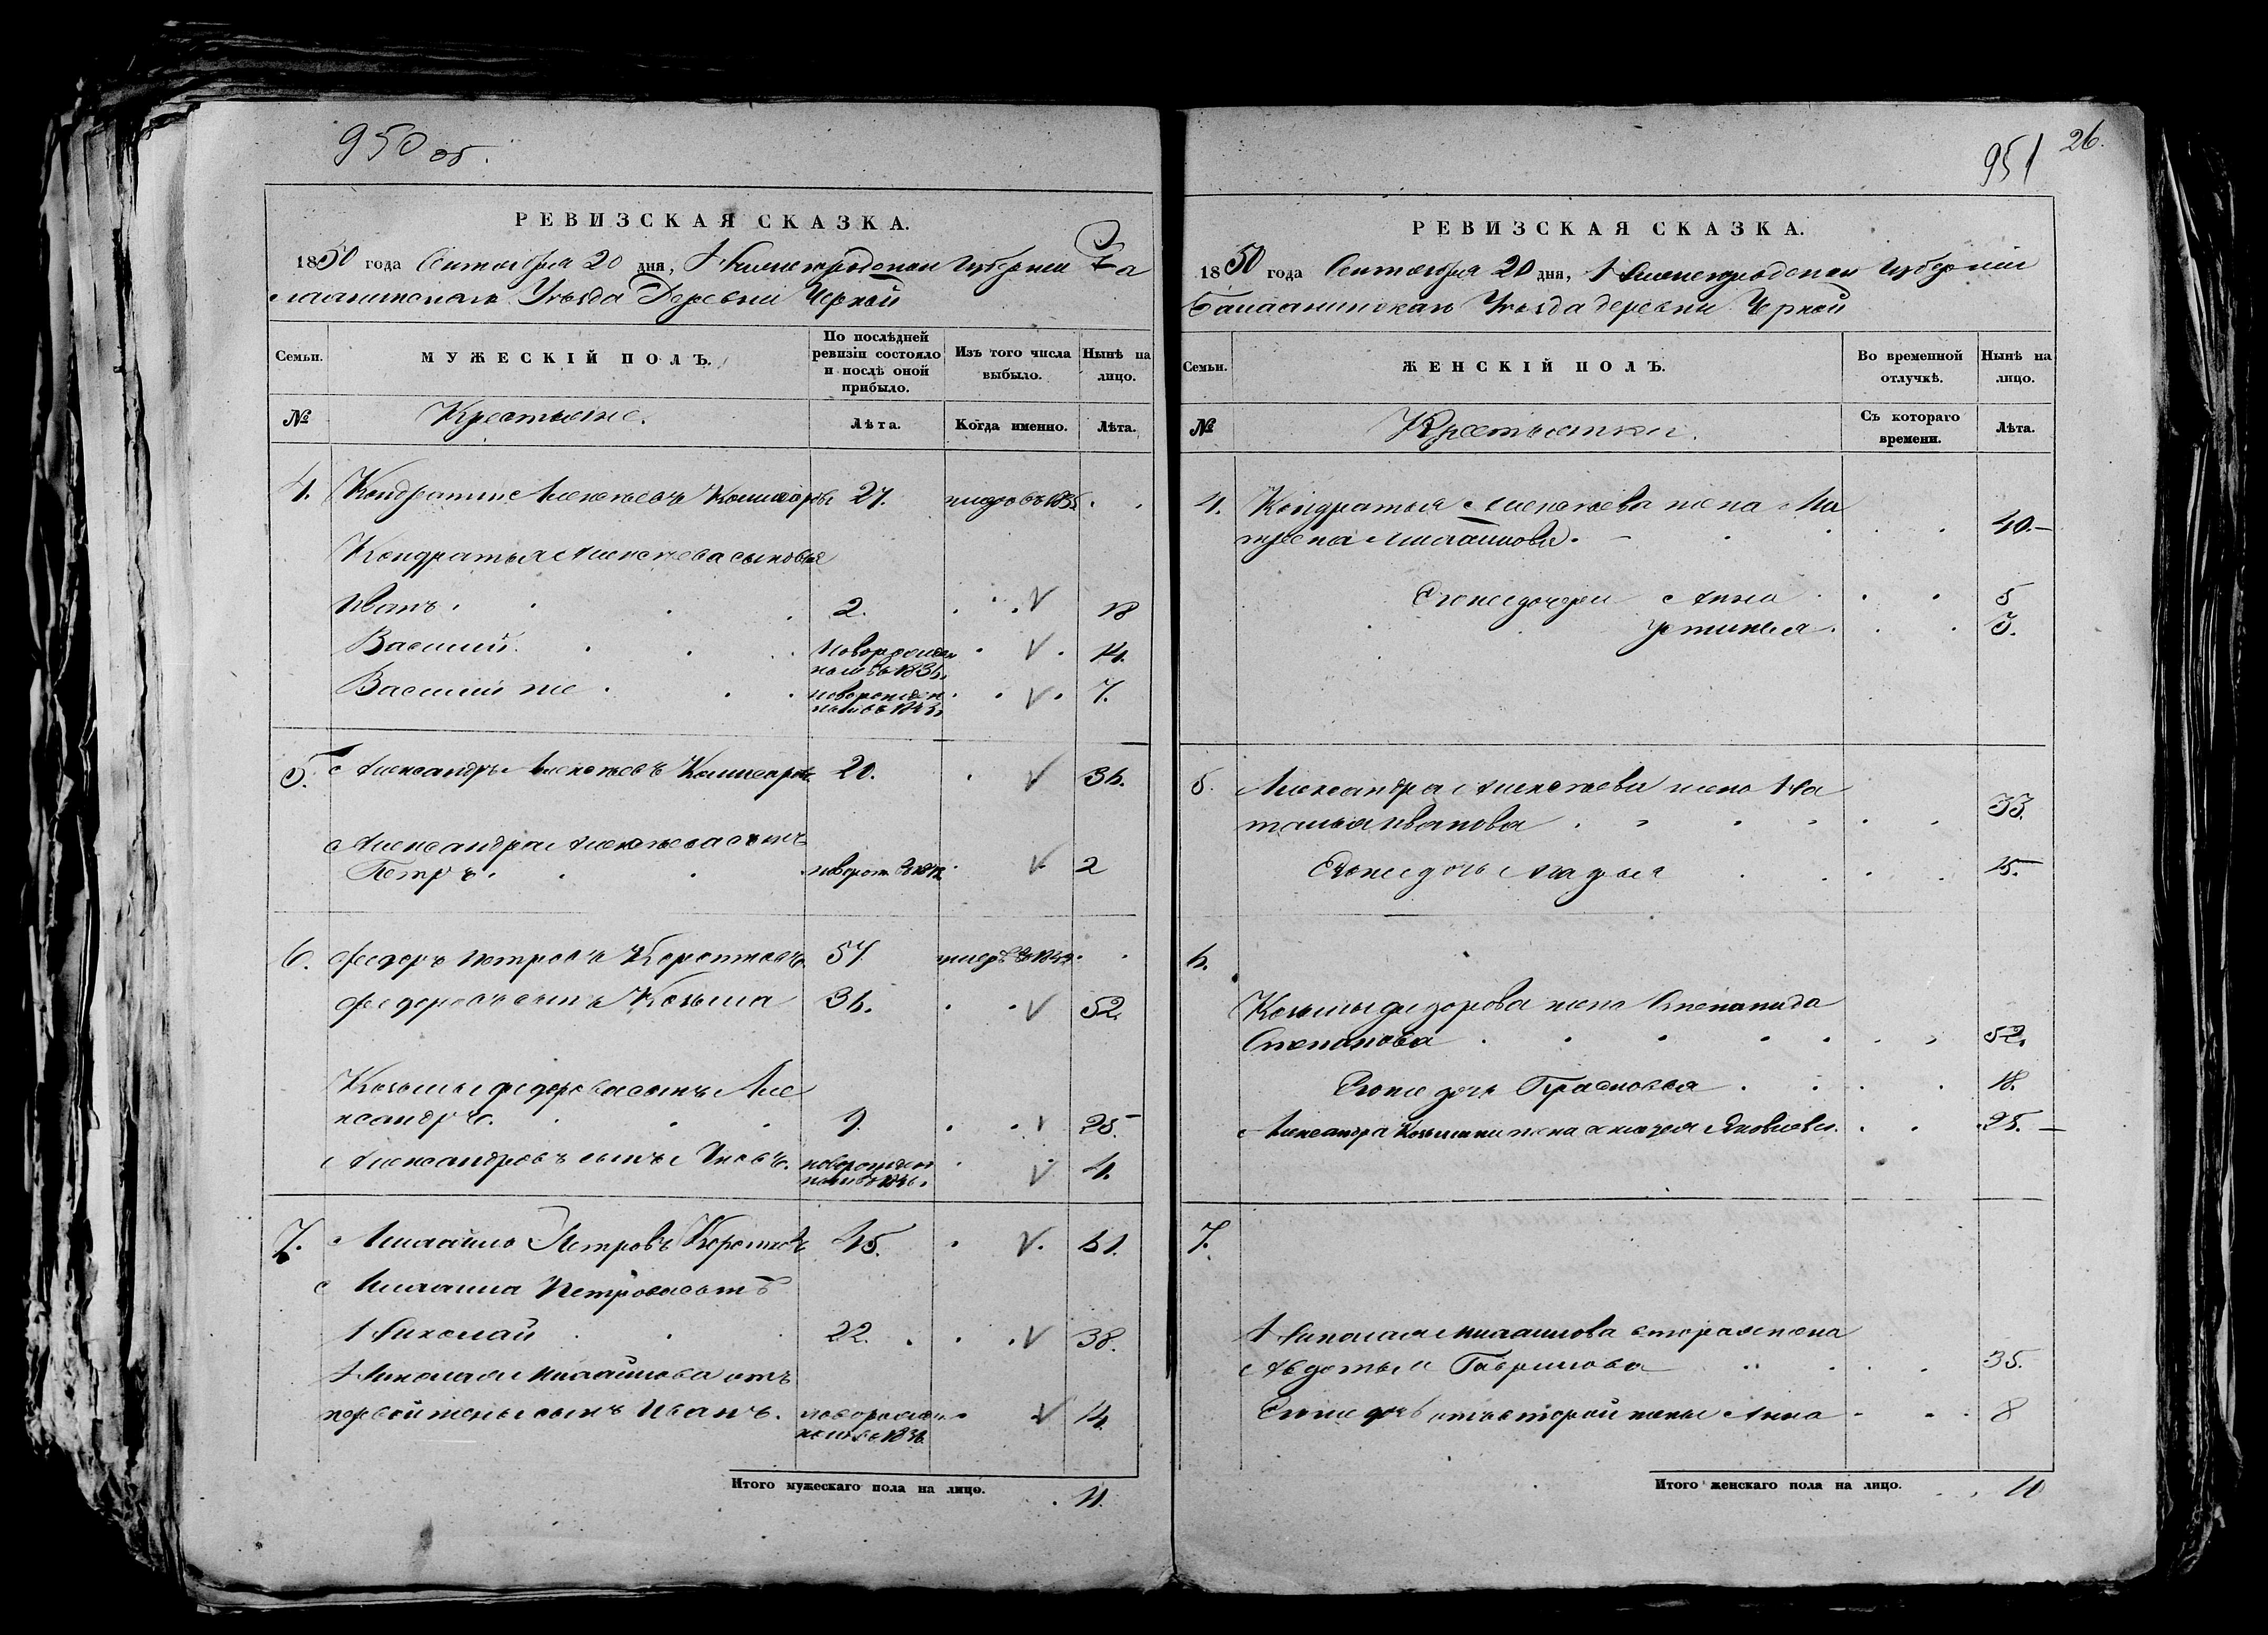 950 об.
РЕВИЗСКАЯ СКАЗКА.
1850 года Сентября 20 дня, Нижегородской Губернии Ба
лахнинскаго Уѣзда Деревни Черной
Семьи.
МУЖЕСКІЙ ПОЛЪ.
По послѣдней ревизіи состояло и послѣ оной прибыло.
Изъ того числа выбыло.
Нынѣ на лицо.
№
Крестьяне.
Лѣта.
Когда именно.
Лѣта.
4. Кондратий Алексѣевъ 27.
Кондратья Алексѣева сыновья
Иванъ 2. 18
Василий новорожден 14.
ной въ 1836.
Василий же новорожден 7.
ной въ 1843.
5. Александръ Алексѣевъ 20. 36.
Александра Алексѣева сынъ
Петръ. 2
6. Федоръ Петровъ Коротковъ 57.
Федоровъ сынъ Козьма 36. 52.
Козьмы Федорова сынъ Але
ксандръ. 9. 25.
Александровъ сынъ Яковъ. новорожден 4.
ной въ 1846.
7. Михайло Петровъ Коротковъ 45. 61.
Михаила Петрова сынъ
Николай 22. 38.
Николая Михайлова отъ
первой жены сынъ Иванъ. новорожден 14.
ной въ 1836.
Итого мужескаго пола на лицо. 11.
951 26.
РЕВИЗСКАЯ СКАЗКА.
1850 года Сентября 20 дня, Нижегородской Губерніи
Балахнинскаго Уѣзда деревни Черной
Семьи.
ЖЕНСКІЙ ПОЛЪ.
Во временной отлучкѣ.
Нынѣ на лицо.
№
Крестьянки.
Съ котораго времени.
Лѣта.
4. Кондратья Алексѣева жена Ма
трена Михайлова. 40.
Егоже дочери Анна 5
Устинья. 3.
5. Александра Алексѣева жена На
талья Иванова 33.
Егоже дочь Марья 15.
6.
Козьмы Федорова жена Степанида
Степанова 52.
Егоже дочь Прасковья 18.
Александра Козьмина жена Яковлева. 25.
7.
Николая Михайлова вторая жена
Авдотья Гаврилова 35.
Егоже дочь отъ второй жены Анна 8
Итого женскаго пола на лицо. 11